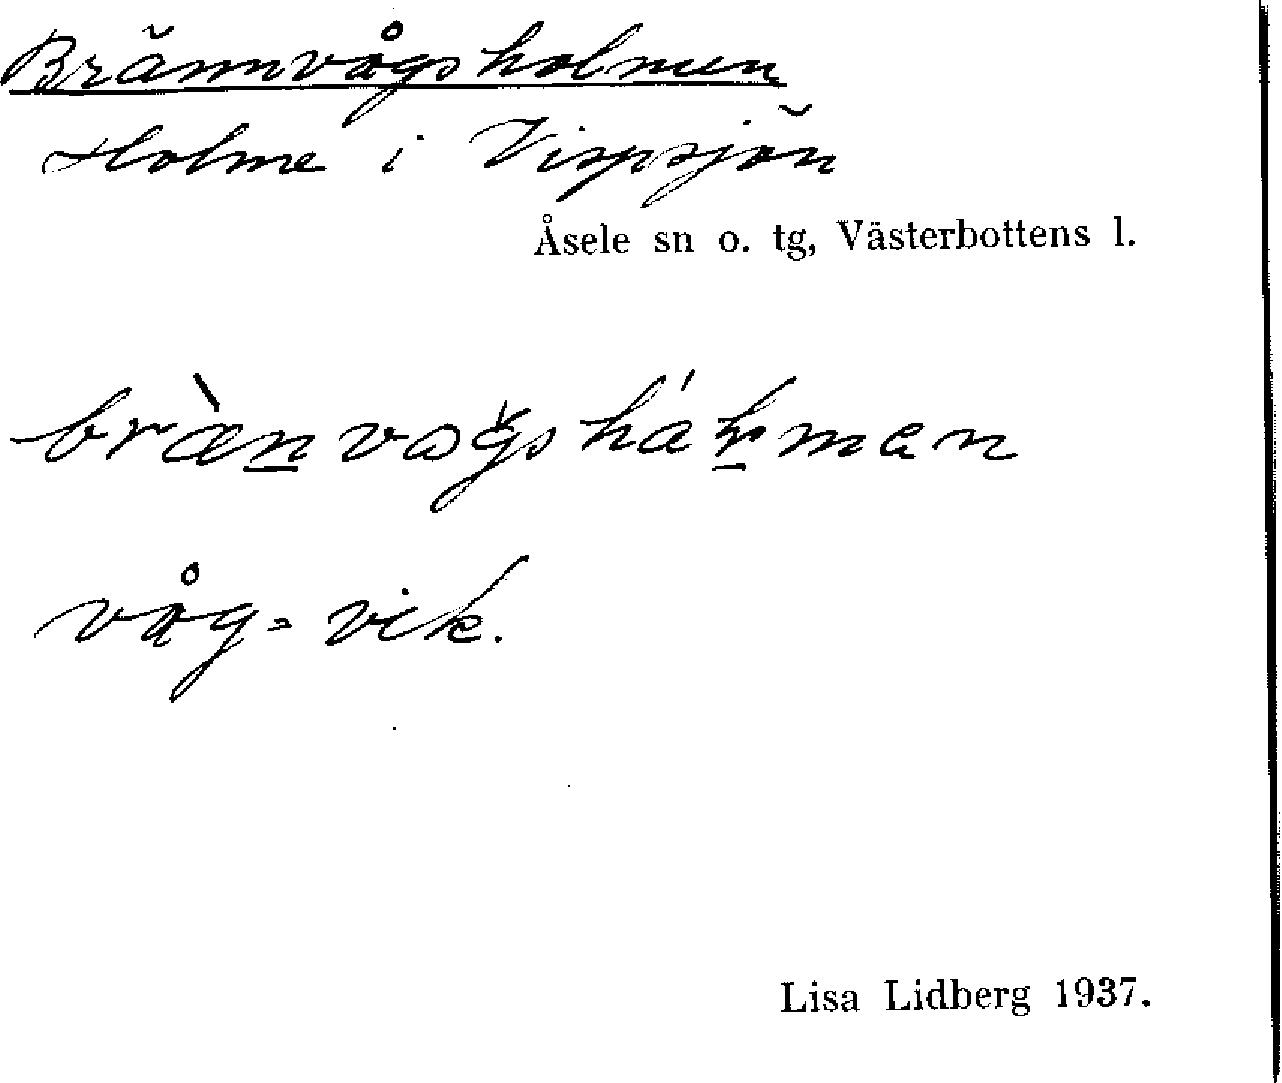 Brännvågsholmen
Holme i Vispsjön
Åsele sn o. tg, Västerbottens l.
våg = vik.
Lisa Lidberg 1937.